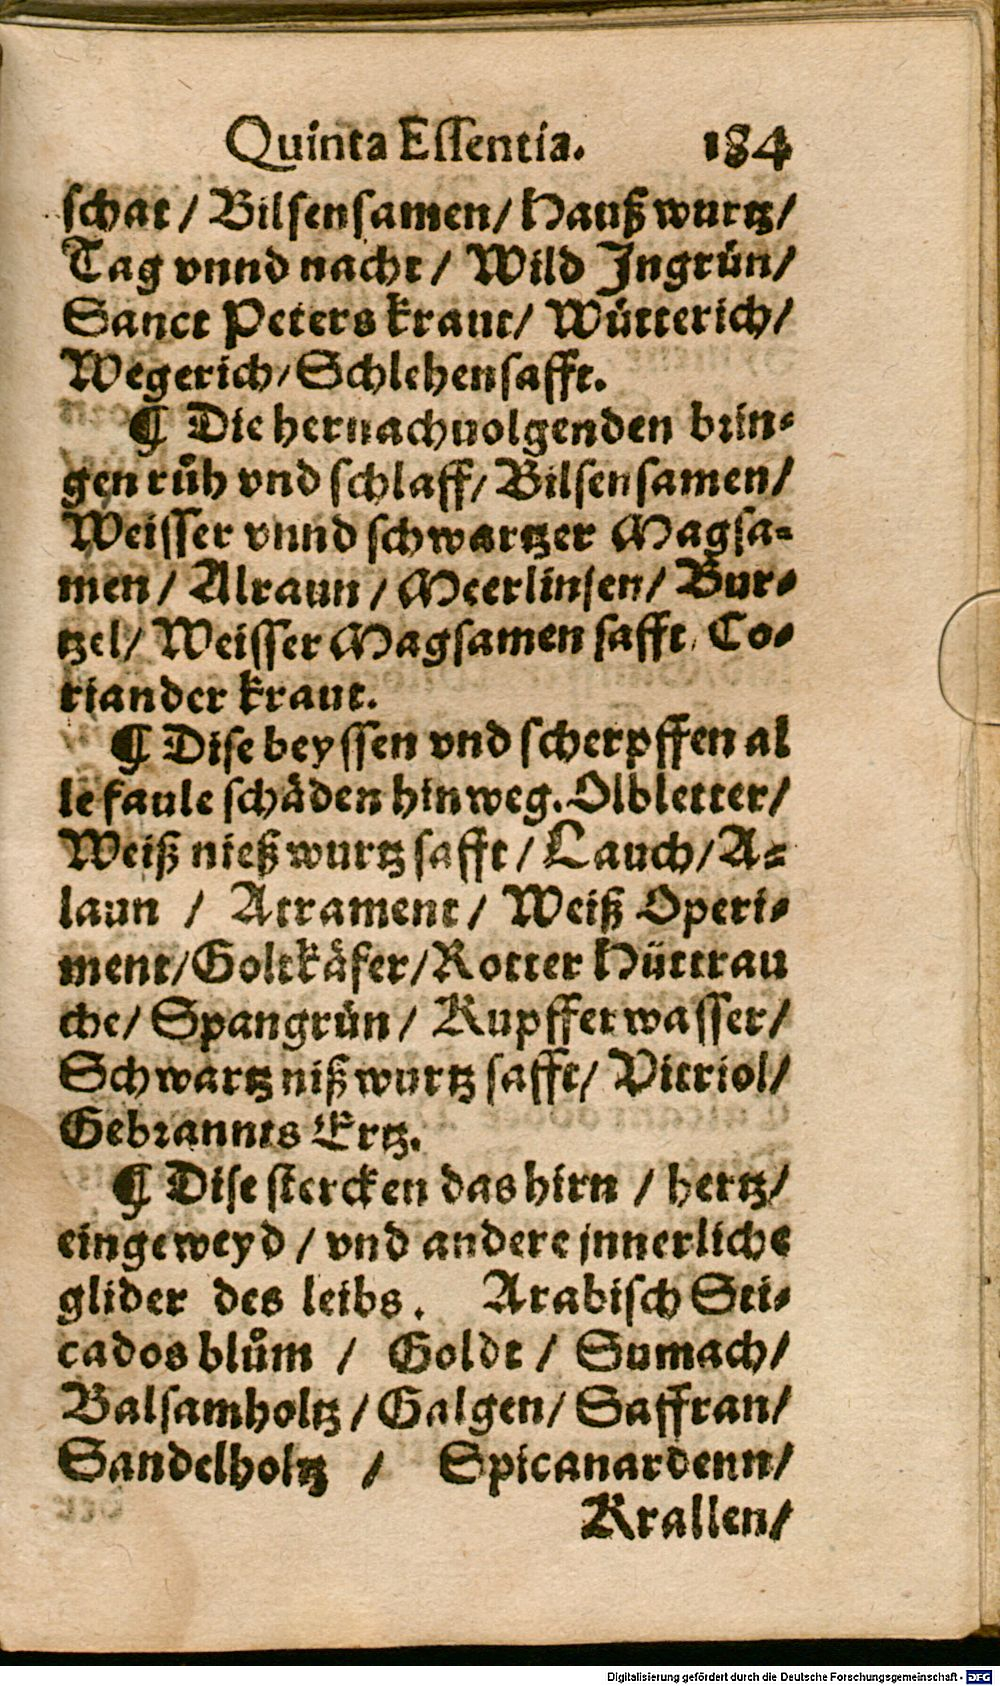 Quinta Essentia. 184
schat / Bilsensamen / Haußwurtz /
Tag vnnd nacht / Wild Ingrün /
Sanct Peters kraut / Wütterich /
Wegerich / Schlehensafft.
¶ Die hernachuolgenden brin-
gen růh vnd schlaff / Bilsensamen /
Weisser vnnd schwartzer Magsa-
men / Alraun / Meerlinsen / Bur-
tzel / Weisser Magsamen safft, Co-
riander kraut.
¶ Dise beyssen vnd scherpffen al
le faule schäden hinweg. Olbletter /
Weiß nießwurtz safft / Lauch / A-
laun / Atrament / Weiß Operi-
ment / Goltkäfer / Rotter Hüttrau
che / Spangrün / Kupfferwasser /
Schwartz nißwurtz safft / Vitriol /
Gebrannts Ertz.
¶ Dise stercken das hirn / hertz /
eingeweyd / vnd andere jnnerliche
glider des leibs. Arabisch Sti-
cados blům / Goldt / Sumach /
Balsamholtz / Galgen / Saffran /
Sandelholtz / Spicanardenn /
Krallen /
Digitalisierung gefördert durch die Deutsche Forschungsgemeinschaft - DFG